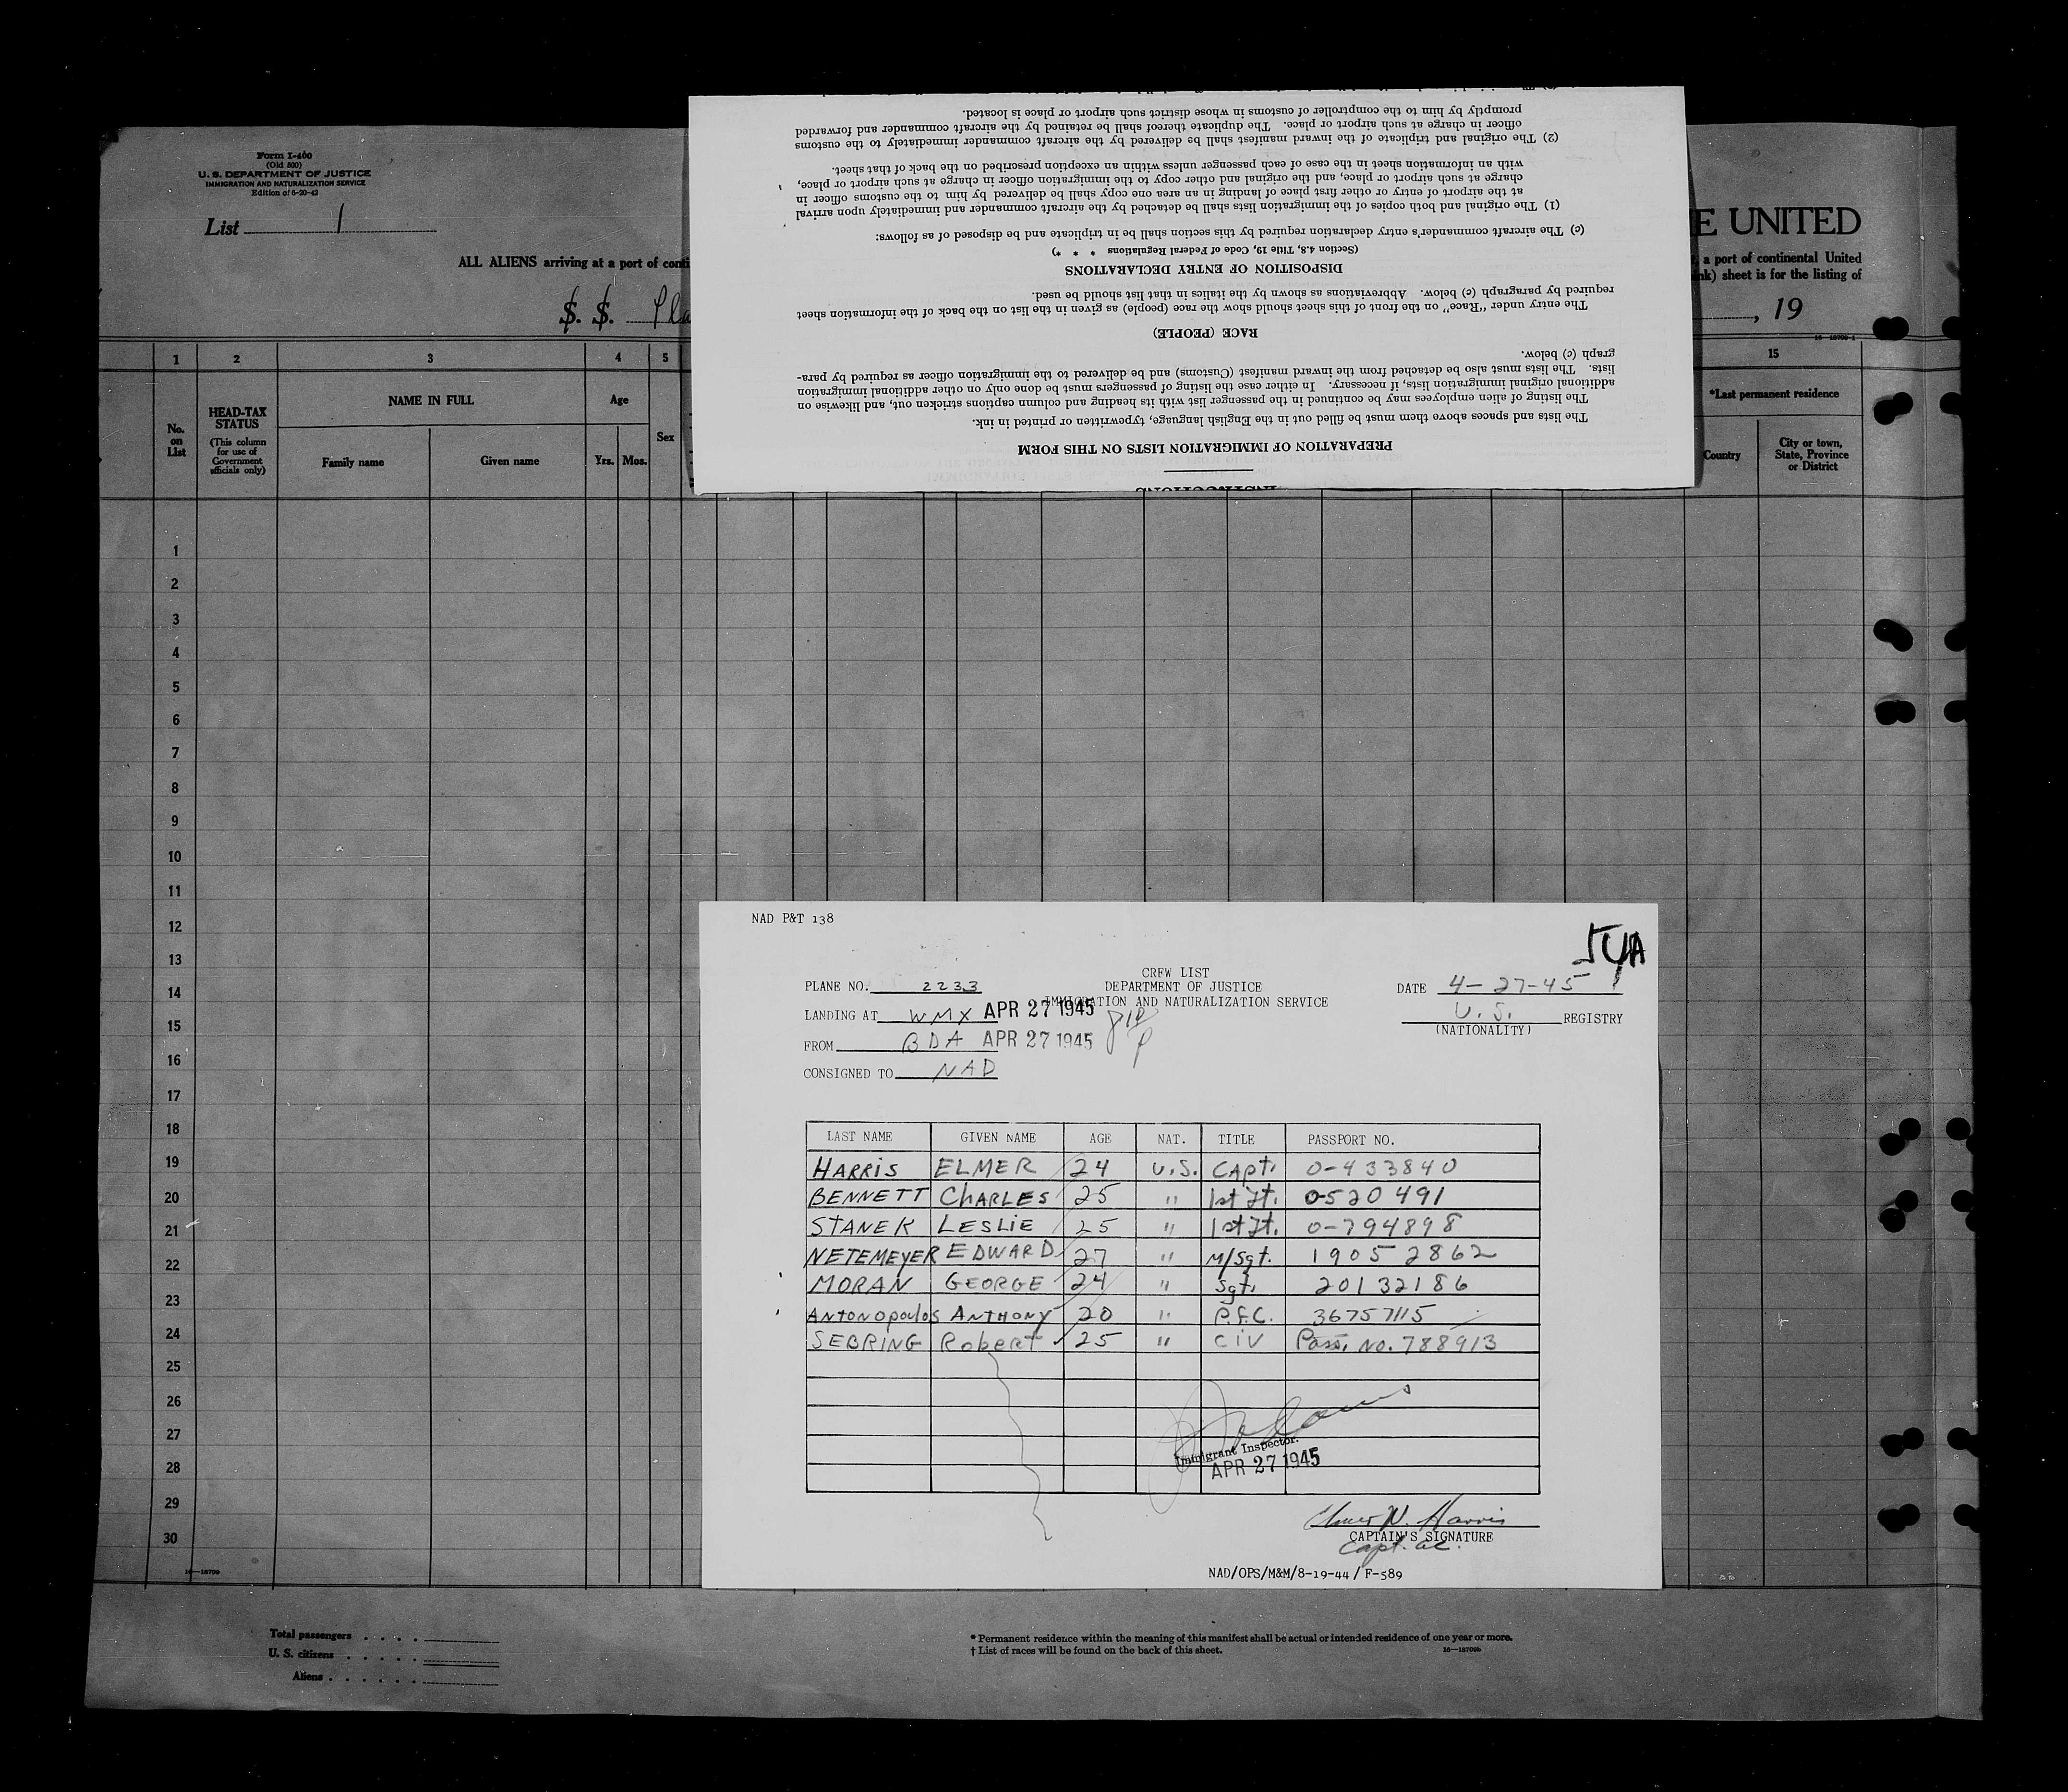 Form I-460
(Old 500)
U. S. DEPARTMENT OF JUSTICE
IMMIGRATION AND NATURALIZATION SERVICE
Edition of 6-20-42
List 1
ALL ALIENS arriving at a port of conti
S. S. Pla
E UNITED
a port of continental United
nk) sheet is for the listing of
, 19
PREPARATION OF IMMIGRATION LISTS ON THIS FORM
The lists and spaces above them must be filled out in the English language, typewritten or printed in ink.
The listing of alien employees may be continued in the passenger list with its heading and column captions stricken out, and likewise on
additional original immigration lists, if necessary. In either case the listing of passengers must be done only on other additional immigration
lists. The lists must also be detached from the inward manifest (Customs) and be delivered to the immigration officer as required by para-
graph (c) below.
RACE (PEOPLE)
The entry under "Race" on the front of this sheet should show the race (people) as given in the list on the back of the information sheet
required by paragraph (c) below. Abbreviations as shown by the italics in that list should be used.
DISPOSITION OF ENTRY DECLARATIONS
(Section 4.8, Title 19, Code of Federal Regulations * * *)
(c) The aircraft commander's entry declaration required by this section shall be in triplicate and be disposed of as follows:
(1) The original and both copies of the immigration lists shall be detached by the aircraft commander and immediately upon arrival
at the airport of entry or other first place of landing in an area one copy shall be delivered by him to the customs officer in
charge at such airport or place, and the original and other copy to the immigration officer in charge at such airport or place,
with an information sheet in the case of each passenger unless within an exception prescribed on the back of that sheet.
(2) The original and triplicate of the inward manifest shall be delivered by the aircraft commander immediately to the customs
officer in charge at such airport or place. The duplicate thereof shall be retained by the aircraft commander and forwarded
promptly by him to the comptroller of customs in whose district such airport or place is located.
1 2 3 4 5 15
No. on List
HEAD-TAX STATUS
(This column for use of Government officials only)
NAME IN FULL
Family name Given name
Age
Yrs. Mos.
Sex
*Last permanent residence
Country
City or town, State, Province or District
1
2
3
4
5
6
7
8
9
10
11
12
13
14
15
16
17
18
19
20
21
22
23
24
25
26
27
28
29
30
NAD P&T 138
CREW LIST
DEPARTMENT OF JUSTICE
IMMIGRATION AND NATURALIZATION SERVICE
PLANE NO. 2233
DATE 4-27-45
LANDING AT WMX APR 27 1945
U. S. REGISTRY
(NATIONALITY)
FROM BDA APR 27 1945
CONSIGNED TO NAD
LAST NAME GIVEN NAME AGE NAT. TITLE PASSPORT NO.
HARRIS ELMER 24 U.S. CAPt. 0-433840
BENNETT CHARLES 25 " 1st Lt. 0-520491
STANEK LESLIE 25 " 1st Lt. 0-794898
NETEMEYER EDWARD 27 " M/Sgt. 19052862
MORAN GEORGE 24 " Sgt. 20132186
ANTONOPOULOS ANTHONY 20 " P.F.C. 36757115
SEBRING RobeRT 25 " CIV Pass. No. 788913
Immigrant Inspector.
APR 27 1945
Elmer N. Harris
CAPTAIN'S SIGNATURE
Capt. ac.
NAD/OPS/M&M/8-19-44/F-589
16—18709
Total passengers
U. S. citizens
Aliens
* Permanent residence within the meaning of this manifest shall be actual or intended residence of one year or more.
† List of races will be found on the back of this sheet.